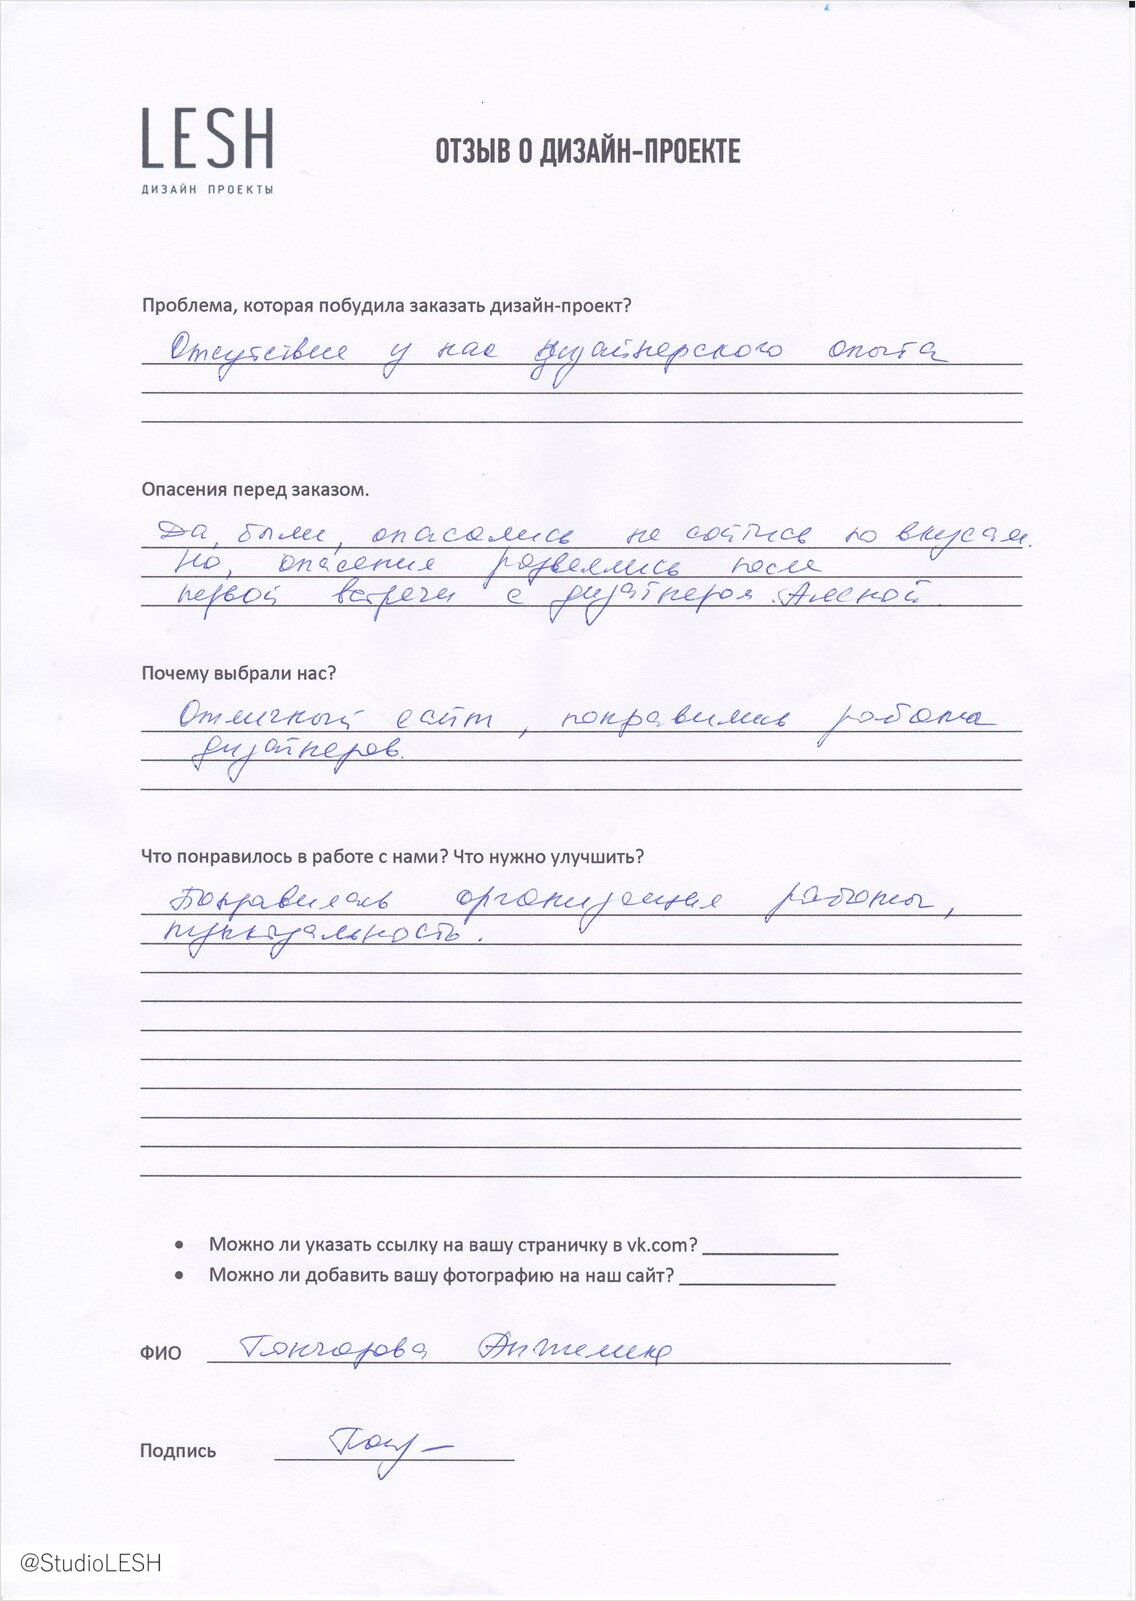 LESH
ДИЗАЙН ПРОЕКТЫ
ОТЗЫВ О ДИЗАЙН-ПРОЕКТЕ
Проблема, которая побудила заказать дизайн-проект?
Отсутствие у нас дизайнерского опыта
Опасения перед заказом.
Да, были, опасались не сойтись во вкусам.
Но, опасения развеялись после
первой встречи с дизайнером Алесной.
Почему выбрали нас?
Отличный сайт, понравились работы
дизайнеров.
Что понравилось в работе с нами? Что нужно улучшить?
Понравилась организация работы,
пунктуальность.
Можно ли указать ссылку на вашу страничку в vk.com?
Можно ли добавить вашу фотографию на наш сайт?
ФИО Гончарова Анжелика
Подпись
@StudioLESH